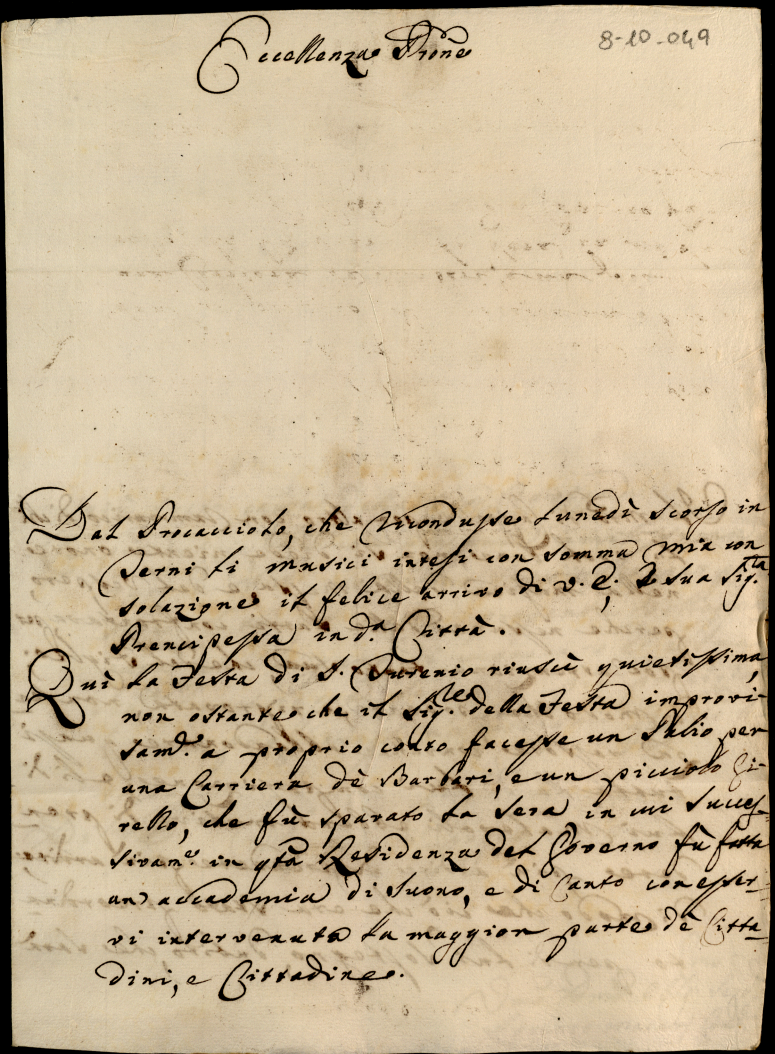 8-10-049
Eccellenza Prone
Dal Procacciolo, che ricondusse lunedì scorso in
Terni li musici intesi con somma mia con
solazione il felice arrivo di V. E., e sua Sig.ra
Prencipessa in d.a Città.
Quì la Festa di S. riuscì quietissima,
non ostante che il Sig.re della Festa improvi-
sam.e a proprio conto facesse un Palio per
una Carriera de Barbari, e un picciolo Gi-
rello, che fù sparato la sera, in cui succes-
sivam.e in qsta Residenza del Governo fù fatta
un accademia di suono, e di Canto con esser-
vi intervenuta la maggior parte de Citta-
dini, e Cittadine.